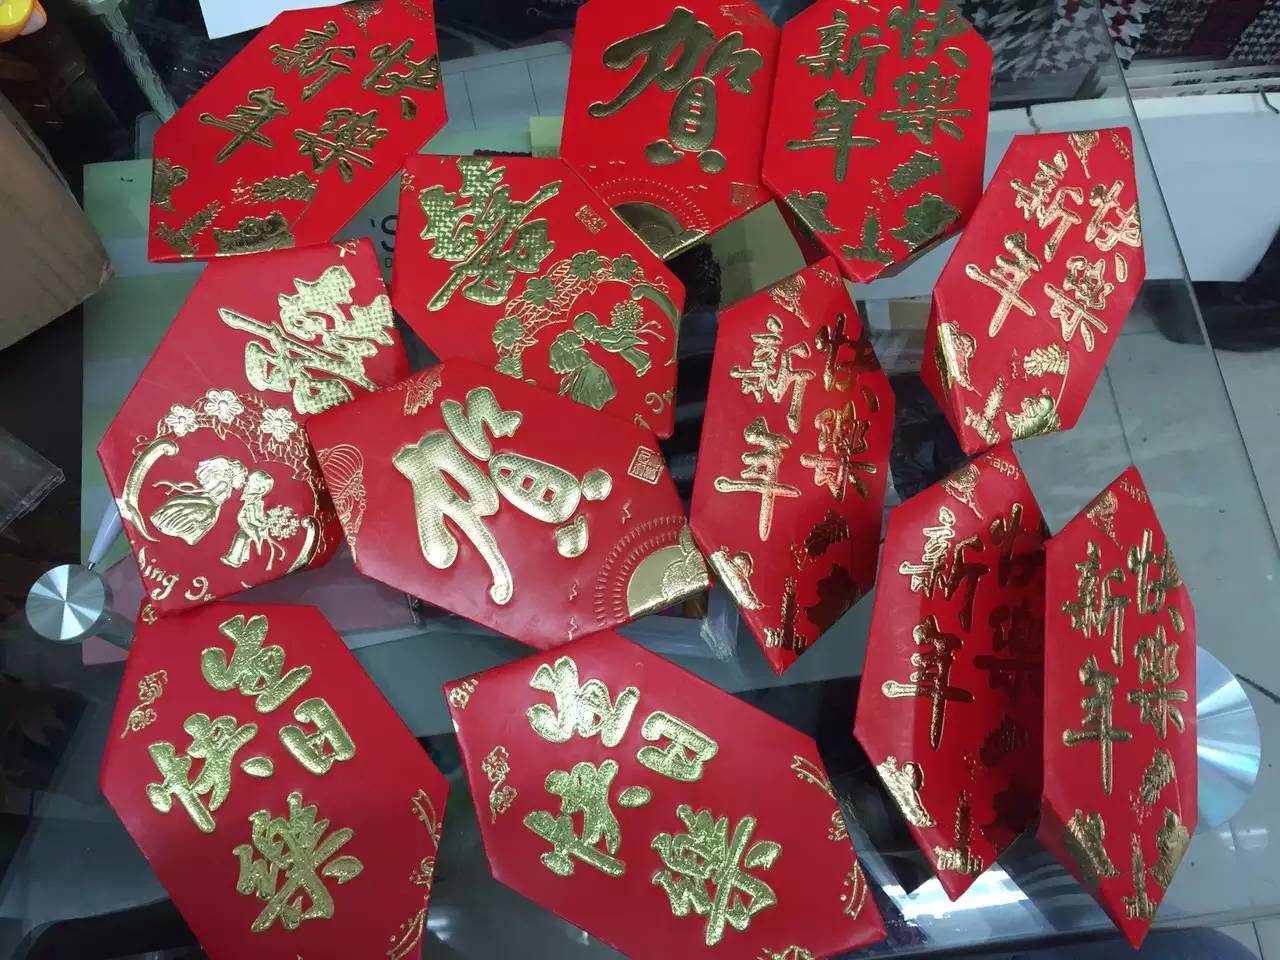 新年快樂
賀
新年快樂
新年快樂
'S
新年快樂
賀
新年快樂
新年快樂
生日快樂
生日快樂